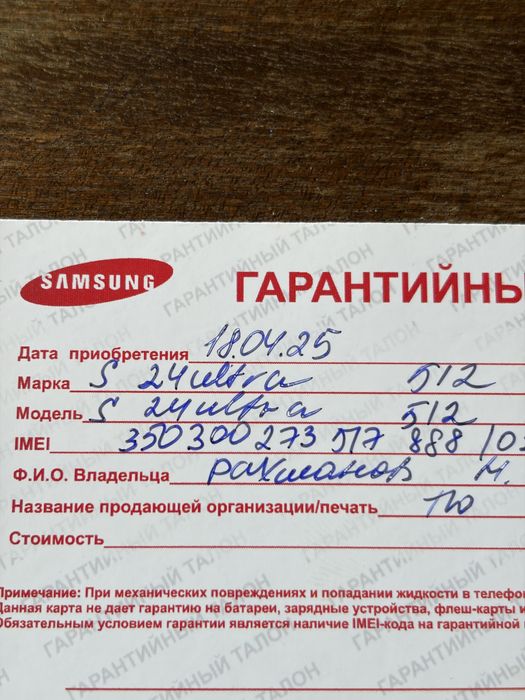 SAMSUNG
ГАРАНТИЙНЫ
Дата приобретения 18.04.25
Марка S 24 ultra 512
Модель S 24 ultra 512
IMEI 350 300 273 517 888 /03
Ф.И.О. Владельца Рахманов М.
Название продающей организации/печать
Стоимость
Примечание: При механических повреждениях и попадании жидкости в телефо
Данная карта не дает гарантию на батареи, зарядные устройства, флеш-карты и
Обязательным условием гарантии является наличие IMEI-кода на гарантийной